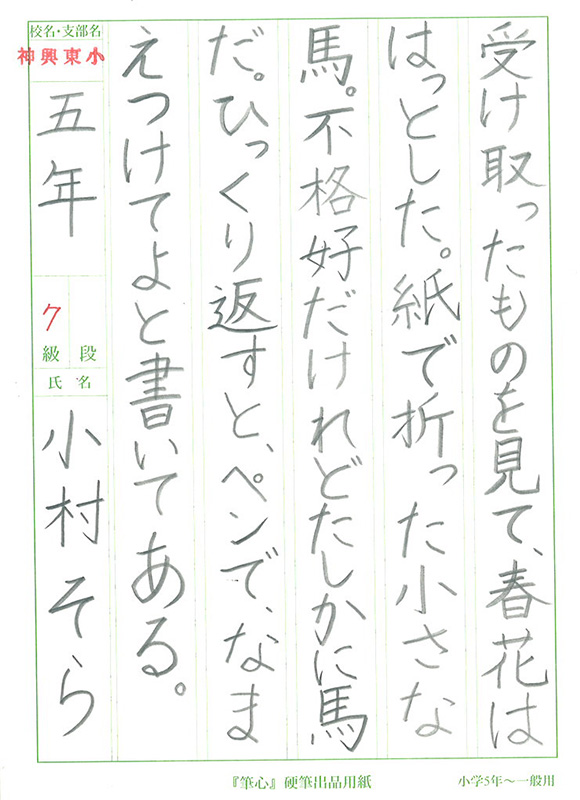 受け取ったものを見て、春花は
はっとした。紙で折った小さな
馬。不格好だけれどたしかに馬
だ。ひっくり返すと、ペンで、なま
えつけてよと書いてある。
校名・支部名
神興東小
五年
7
級 段
氏名
小村そら
『筆心』硬筆出品用紙
小学5年～一般用